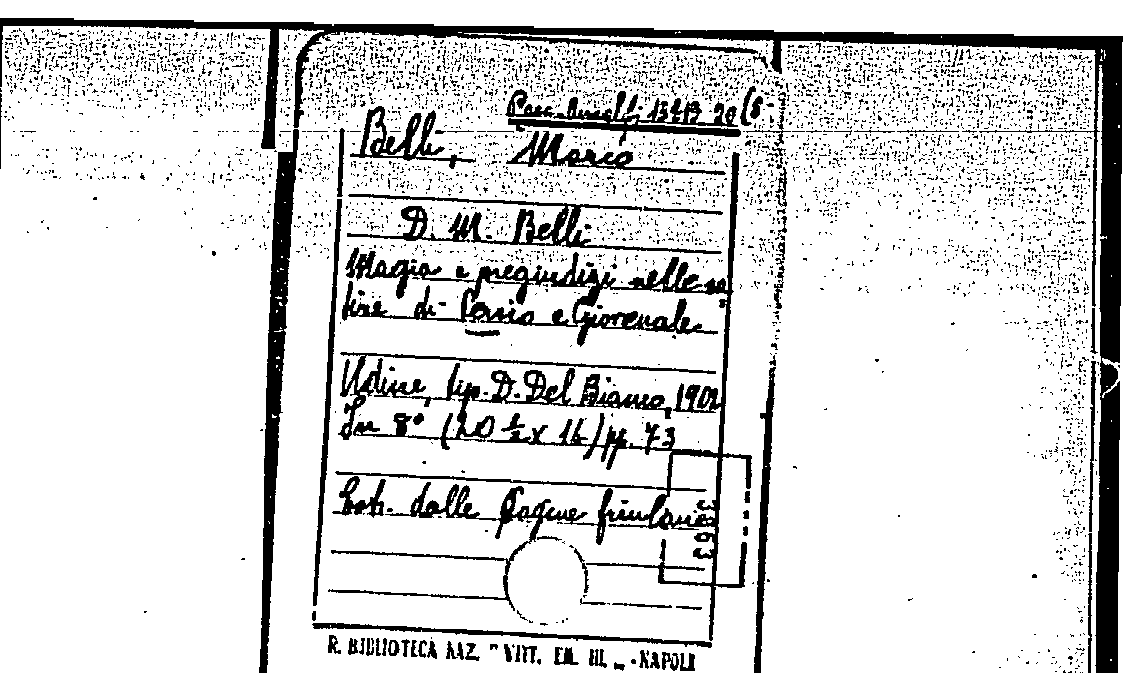 Racc. 13 F 13 20 (6
Belli, Marco
D. M. Belli
Magia e pregiudizi nelle sa
tire di Persio e Giovenale.
Udine, tip. D. Del Bianco, 1902
In 8° (20 ½ x 16) pp. 73
Estr. dalle Pagine friulane
R. BIBLIOTECA NAZ. "VITT. EM. III„ - NAPOLI